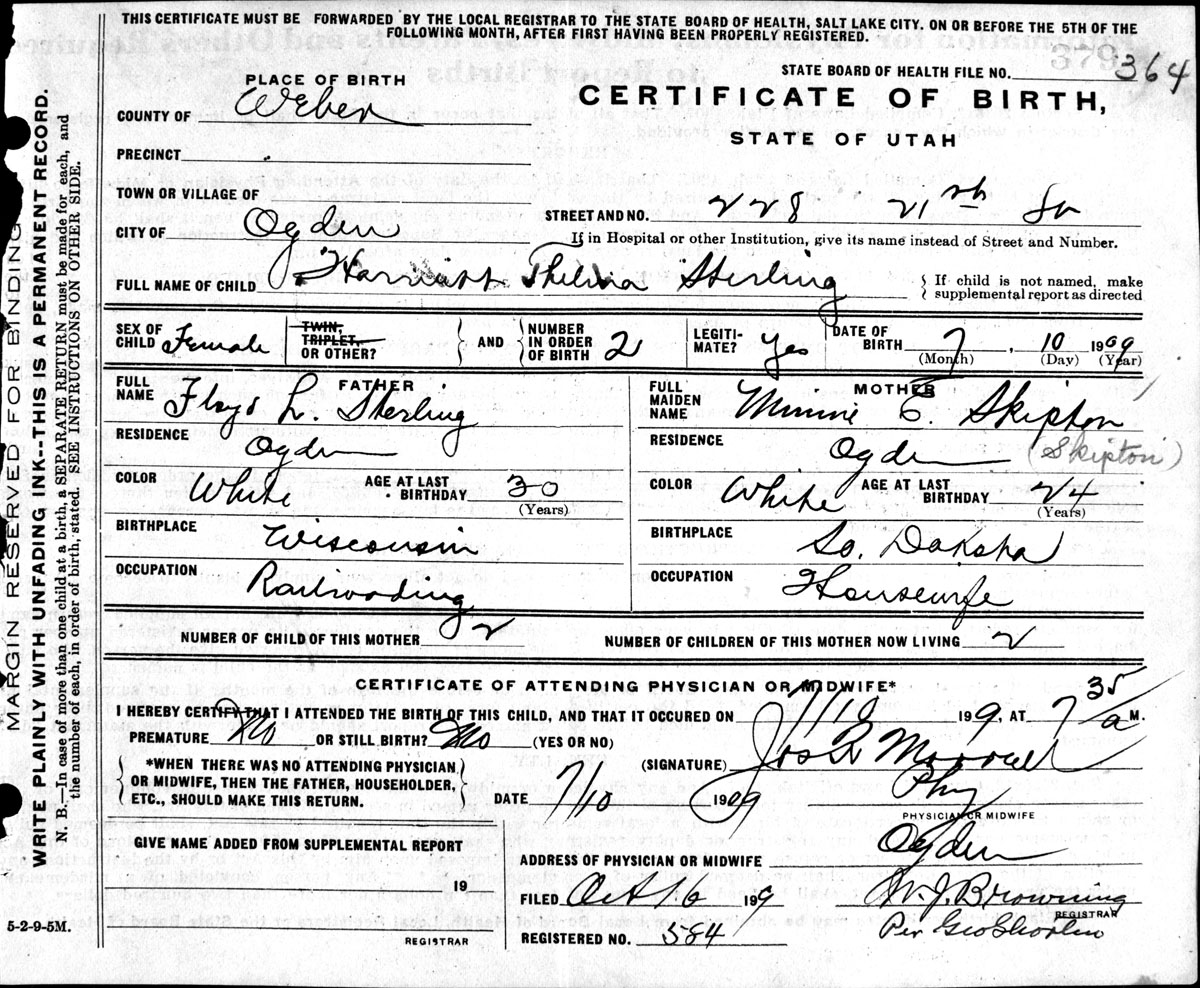 THIS CERTIFICATE MUST BE FORWARDED BY THE LOCAL REGISTRAR TO THE STATE BOARD OF HEALTH, SALT LAKE CITY, ON OR BEFORE THE 5TH OF THE
FOLLOWING MONTH, AFTER FIRST HAVING BEEN PROPERLY REGISTERED.
STATE BOARD OF HEALTH FILE NO. 364
PLACE OF BIRTH
CERTIFICATE OF BIRTH,
COUNTY OF Weber
STATE OF UTAH
PRECINCT
TOWN OR VILLAGE OF
STREET AND NO. 228 21th So
CITY OF Ogden
If in Hospital or other Institution, give its name instead of Street and Number.
FULL NAME OF CHILD Harriett Thelma Sterling
If child is not named, make
supplemental report as directed
SEX OF CHILD Female
TWIN, TRIPLET, OR OTHER?
AND
NUMBER IN ORDER OF BIRTH 2
LEGITI-MATE? Yes
DATE OF BIRTH 7, 10 1909
(Month) (Day) (Year)
FATHER
FULL NAME Floyd L. Sterling
RESIDENCE Ogden
COLOR White AGE AT LAST BIRTHDAY 30
(Years)
BIRTHPLACE Wisconsin
OCCUPATION Railroading
MOTHER
FULL MAIDEN NAME Minnie E. Skipton
RESIDENCE Ogden (Skipton)
COLOR White AGE AT LAST BIRTHDAY 24
(Years)
BIRTHPLACE So. Dakota
OCCUPATION Housewife
NUMBER OF CHILD OF THIS MOTHER 2
NUMBER OF CHILDREN OF THIS MOTHER NOW LIVING 2
CERTIFICATE OF ATTENDING PHYSICIAN OR MIDWIFE*
I HEREBY CERTIFY THAT I ATTENDED THE BIRTH OF THIS CHILD, AND THAT IT OCCURED ON 7/10 1909, AT 7 35/a M.
PREMATURE No OR STILL BIRTH? No (YES OR NO)
*WHEN THERE WAS NO ATTENDING PHYSICIAN
OR MIDWIFE, THEN THE FATHER, HOUSEHOLDER,
ETC., SHOULD MAKE THIS RETURN.
(SIGNATURE) Jos R Morrell
Phy
PHYSICIAN OR MIDWIFE
DATE 7/10 1909
GIVE NAME ADDED FROM SUPPLEMENTAL REPORT
19
REGISTRAR
ADDRESS OF PHYSICIAN OR MIDWIFE Ogden
FILED Oct 16 1909 W. J. Browning
REGISTRAR
REGISTERED NO. 584 Per Geo
MARGIN RESERVED FOR BINDING
WRITE PLAINLY WITH UNFADING INK--THIS IS A PERMANENT RECORD.
N. B.—In case of more than one child at a birth, a SEPARATE RETURN must be made for each, and
the number of each, in order of birth, stated. SEE INSTRUCTIONS ON OTHER SIDE.
5-2-9-5M.